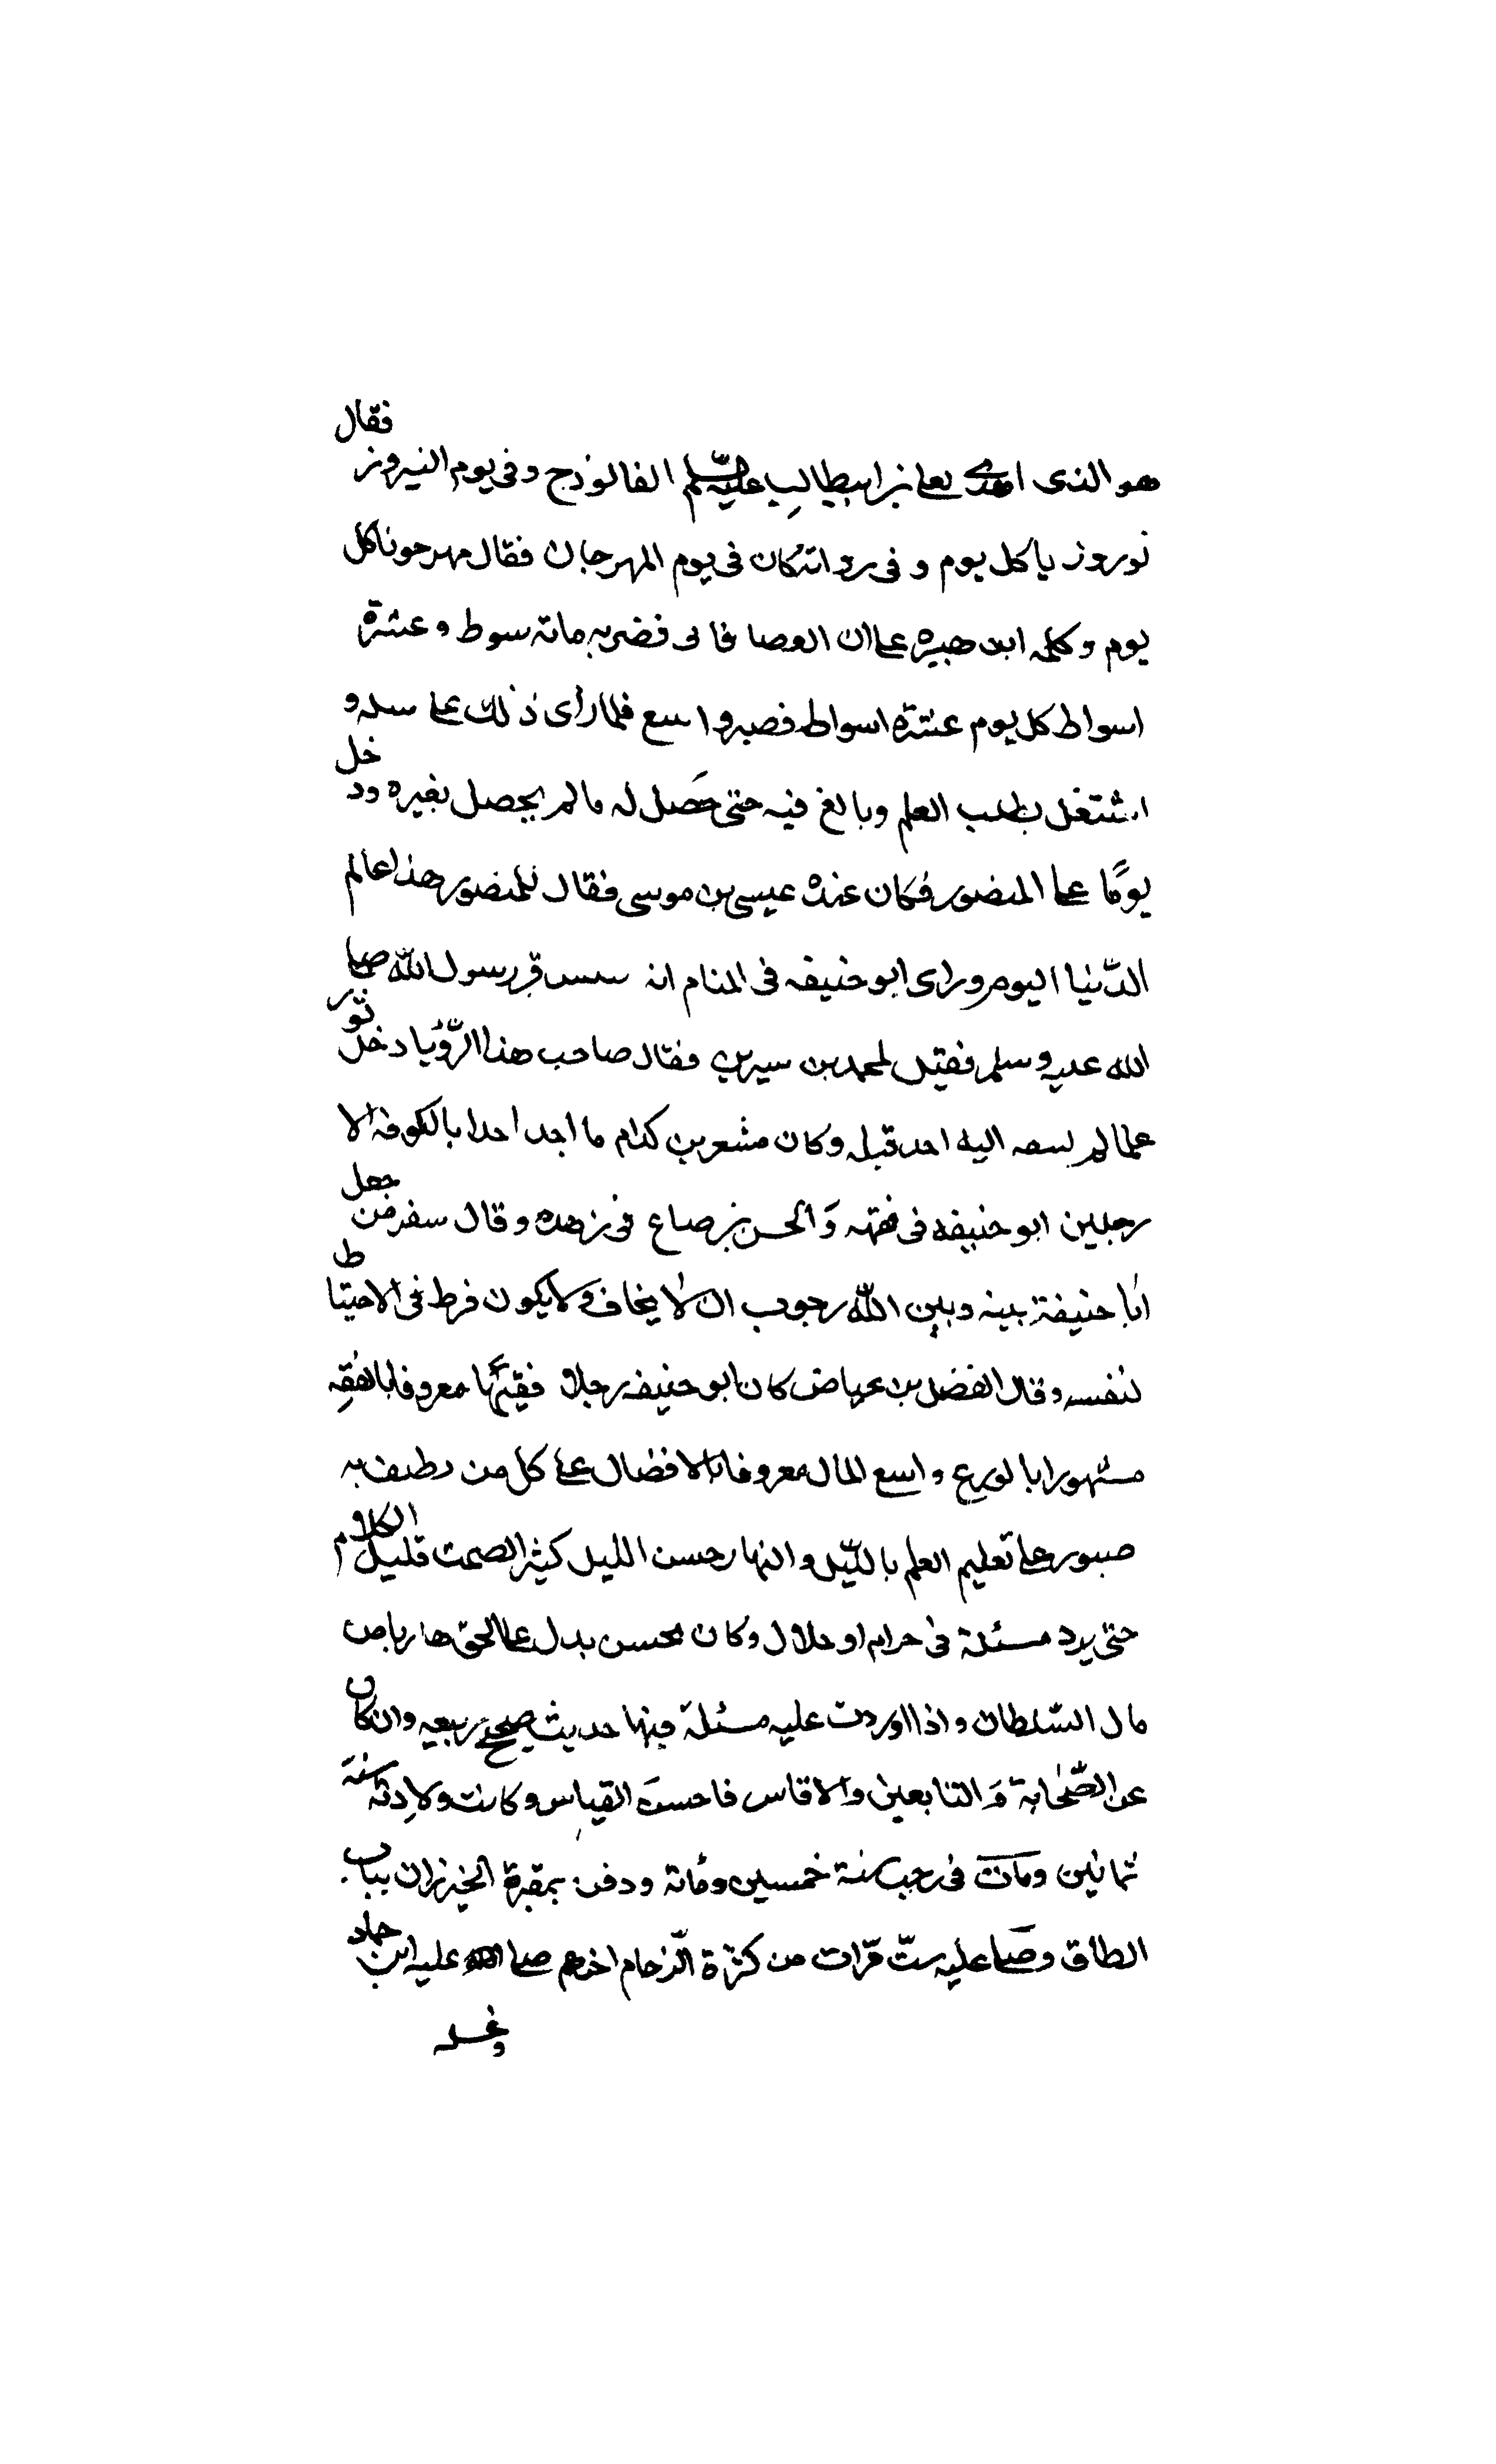 هو الذى اهدى لعلى بن ابيطالب عليه السلم الفالوذج وفى يوم النيروز فقال
نوروز ياكل يوم و فى رو انه كان فى يوم المهرجان فقال مهرجوناكل
يوم وكلمه ابن هبيره على ان العصا فابى فضربه مائة سوط وعشرة
اسواط كل يوم عشرة اسواط فصبر و ا سع فلما راى ذلك على سله و
اشتغل بطلب العلم وبالغ فيه حتى حَصل له مالم يحصل بغيره ودخل
يومًا على المنصور فكان عنده عيسى بن موسى فقال للمنصور هذا عالم
الدّنيا اليوم وراى ابو حنيفه فى المنام انه قبر رسول الله صلى
الله عليه وسلم فقيل لمحمد بن سيرين فقال صاحب هذا الرّؤيا دخل
علما لم يسبقه اليه احد قبله وكان مشعر بن كدام ما اجد احدا بالكوفة الا
رجلين ابو حنيفه فى فقهه وَالحسن بن صاع فى زهده وقال سفر من جعل
ابا حنيفة بينه وبين الله رجوب ان لا يخاف ولا يكون فرط فى الاحتياط
لنفسه وقال الفضل بن عياض كان ابو حنيفه رجلا فقيها معروفا بالفقِه
مشهورا بالورع واسع المال معروفا بالافضال على كل من يطيف به
صبور على تعليم العلم بالليّل والنهار حسن الليل كثير الصمت قليل الكلام
حتى يرد مسئلة فى حرام او حلال وكان يحسن يدل على الحق هاربا من
مال السّلطان واذا اوردت عليه مسئلة فيها حديث صحيح ربعيه وان كان
عن الصّحابة وَالتابعين والا قاس فاحسن القياس وكانت ولادته سنة
ثمانين ومات فى رجب سنة خمسين ومائة ودفن بمقبرة الخيزران بباب
الطاق وصلى عليه ستّ مرّات من كثرة الزّحام اخرهم صلى الله عليه ابن حماد
وغسله